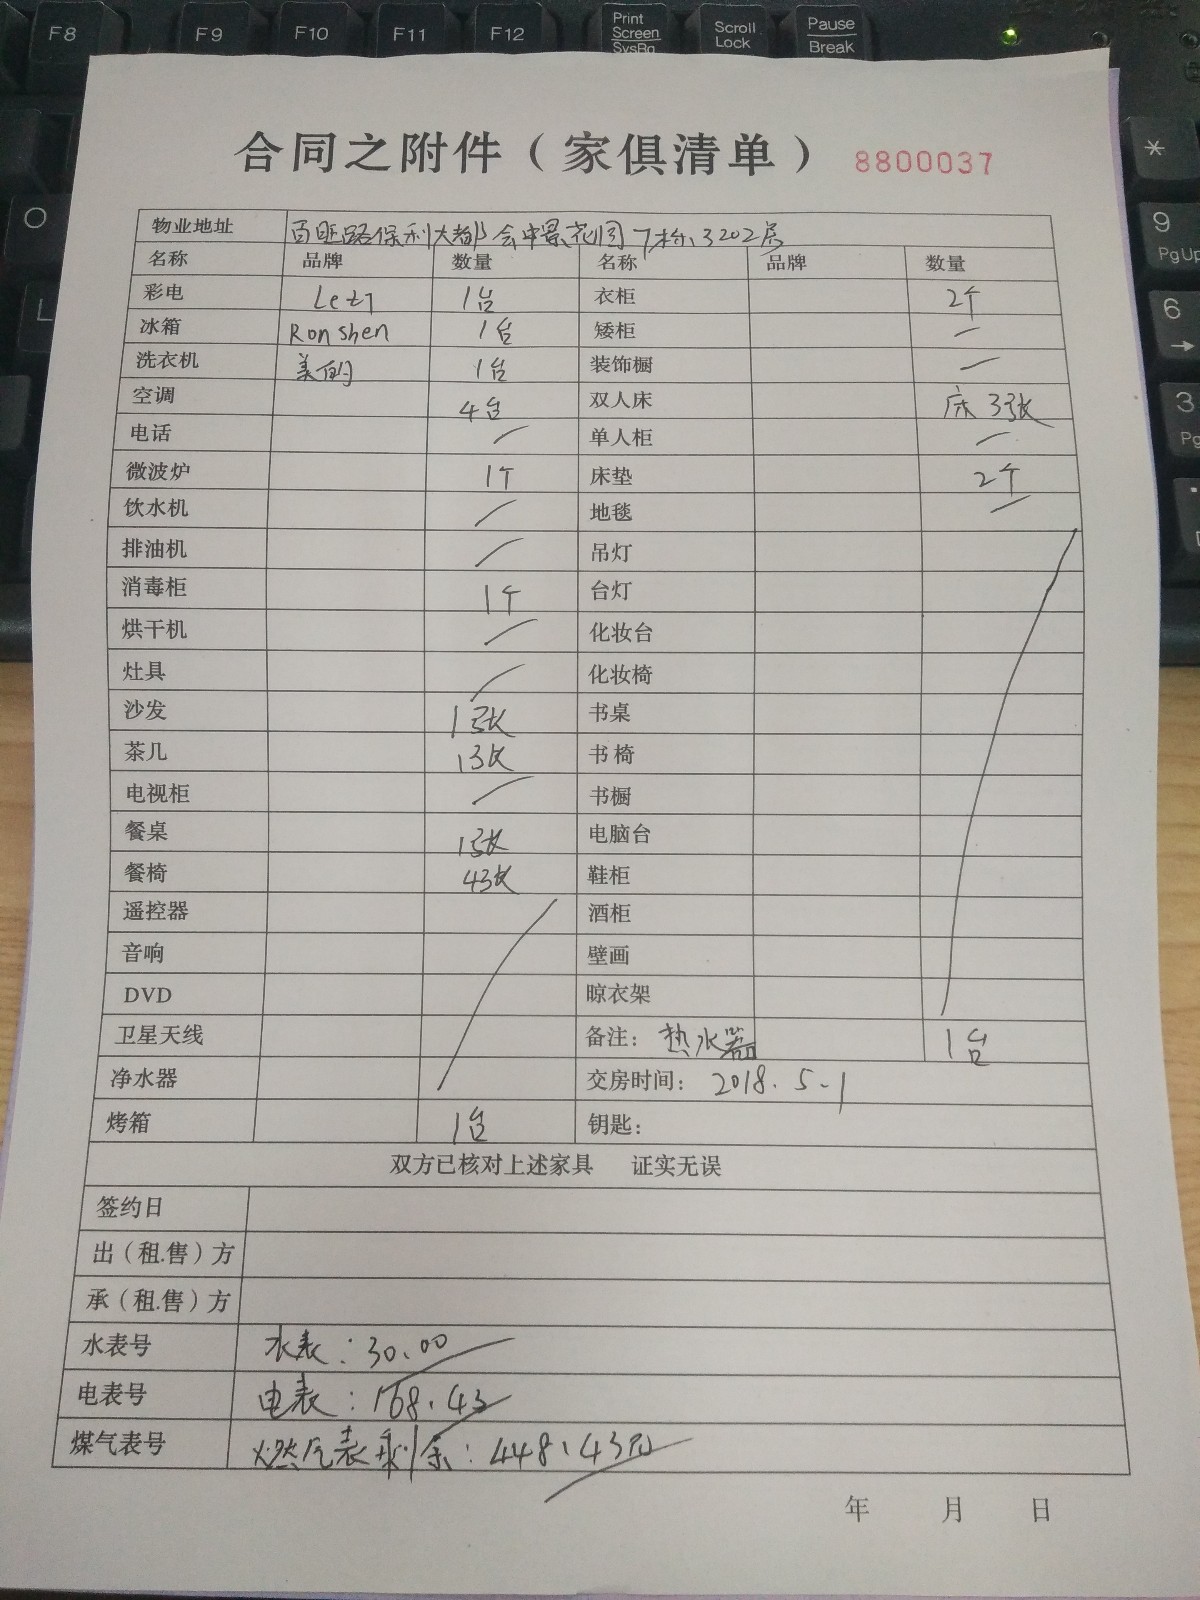 F8 F9 F10 F11 F12 Print Screen SysRq Scroll Lock Pause Break
O
L
*
9 PgUp
6 →
3
合同之附件（家俱清单） 8800037
物业地址 百旺路保利大都会中景花园7栋3202房
名称 品牌 数量 名称 品牌 数量
彩电 1台 衣柜 2个
冰箱 Ronshen 1台 矮柜 —
洗衣机 美的 1台 装饰橱 —
空调 4台 双人床 床3张
电话 / 单人柜 —
微波炉 1个 床垫 2个
饮水机 / 地毯 —
排油机 / 吊灯
消毒柜 1个 台灯
烘干机 / 化妆台
灶具 / 化妆椅
沙发 1张 书桌
茶几 1张 书椅
电视柜 / 书橱
餐桌 1张 电脑台
餐椅 4张 鞋柜
遥控器 酒柜
音响 壁画
DVD 晾衣架
卫星天线 备注：热水器 1台
净水器 交房时间：2018.5.1
烤箱 1台 钥匙：
双方已核对上述家具 证实无误
签约日
出（租.售）方
承（租.售）方
水表号 水表：30.00
电表号 电表：168.43
煤气表号 燃气表剩余：448.43元
年 月 日